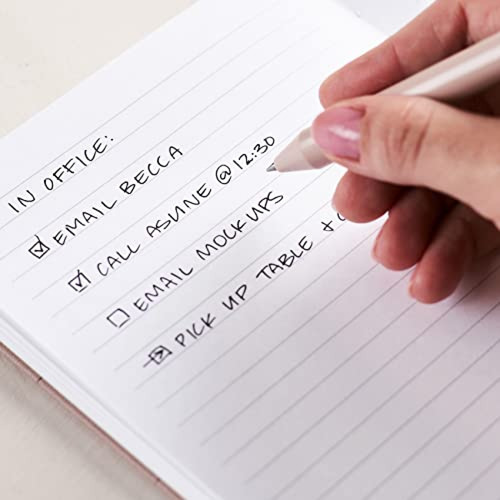 IN OFFICE:
EMAIL BECCA
CALL ASUNE @ 12:30
EMAIL MOCKUPS
PICK UP TABLE +